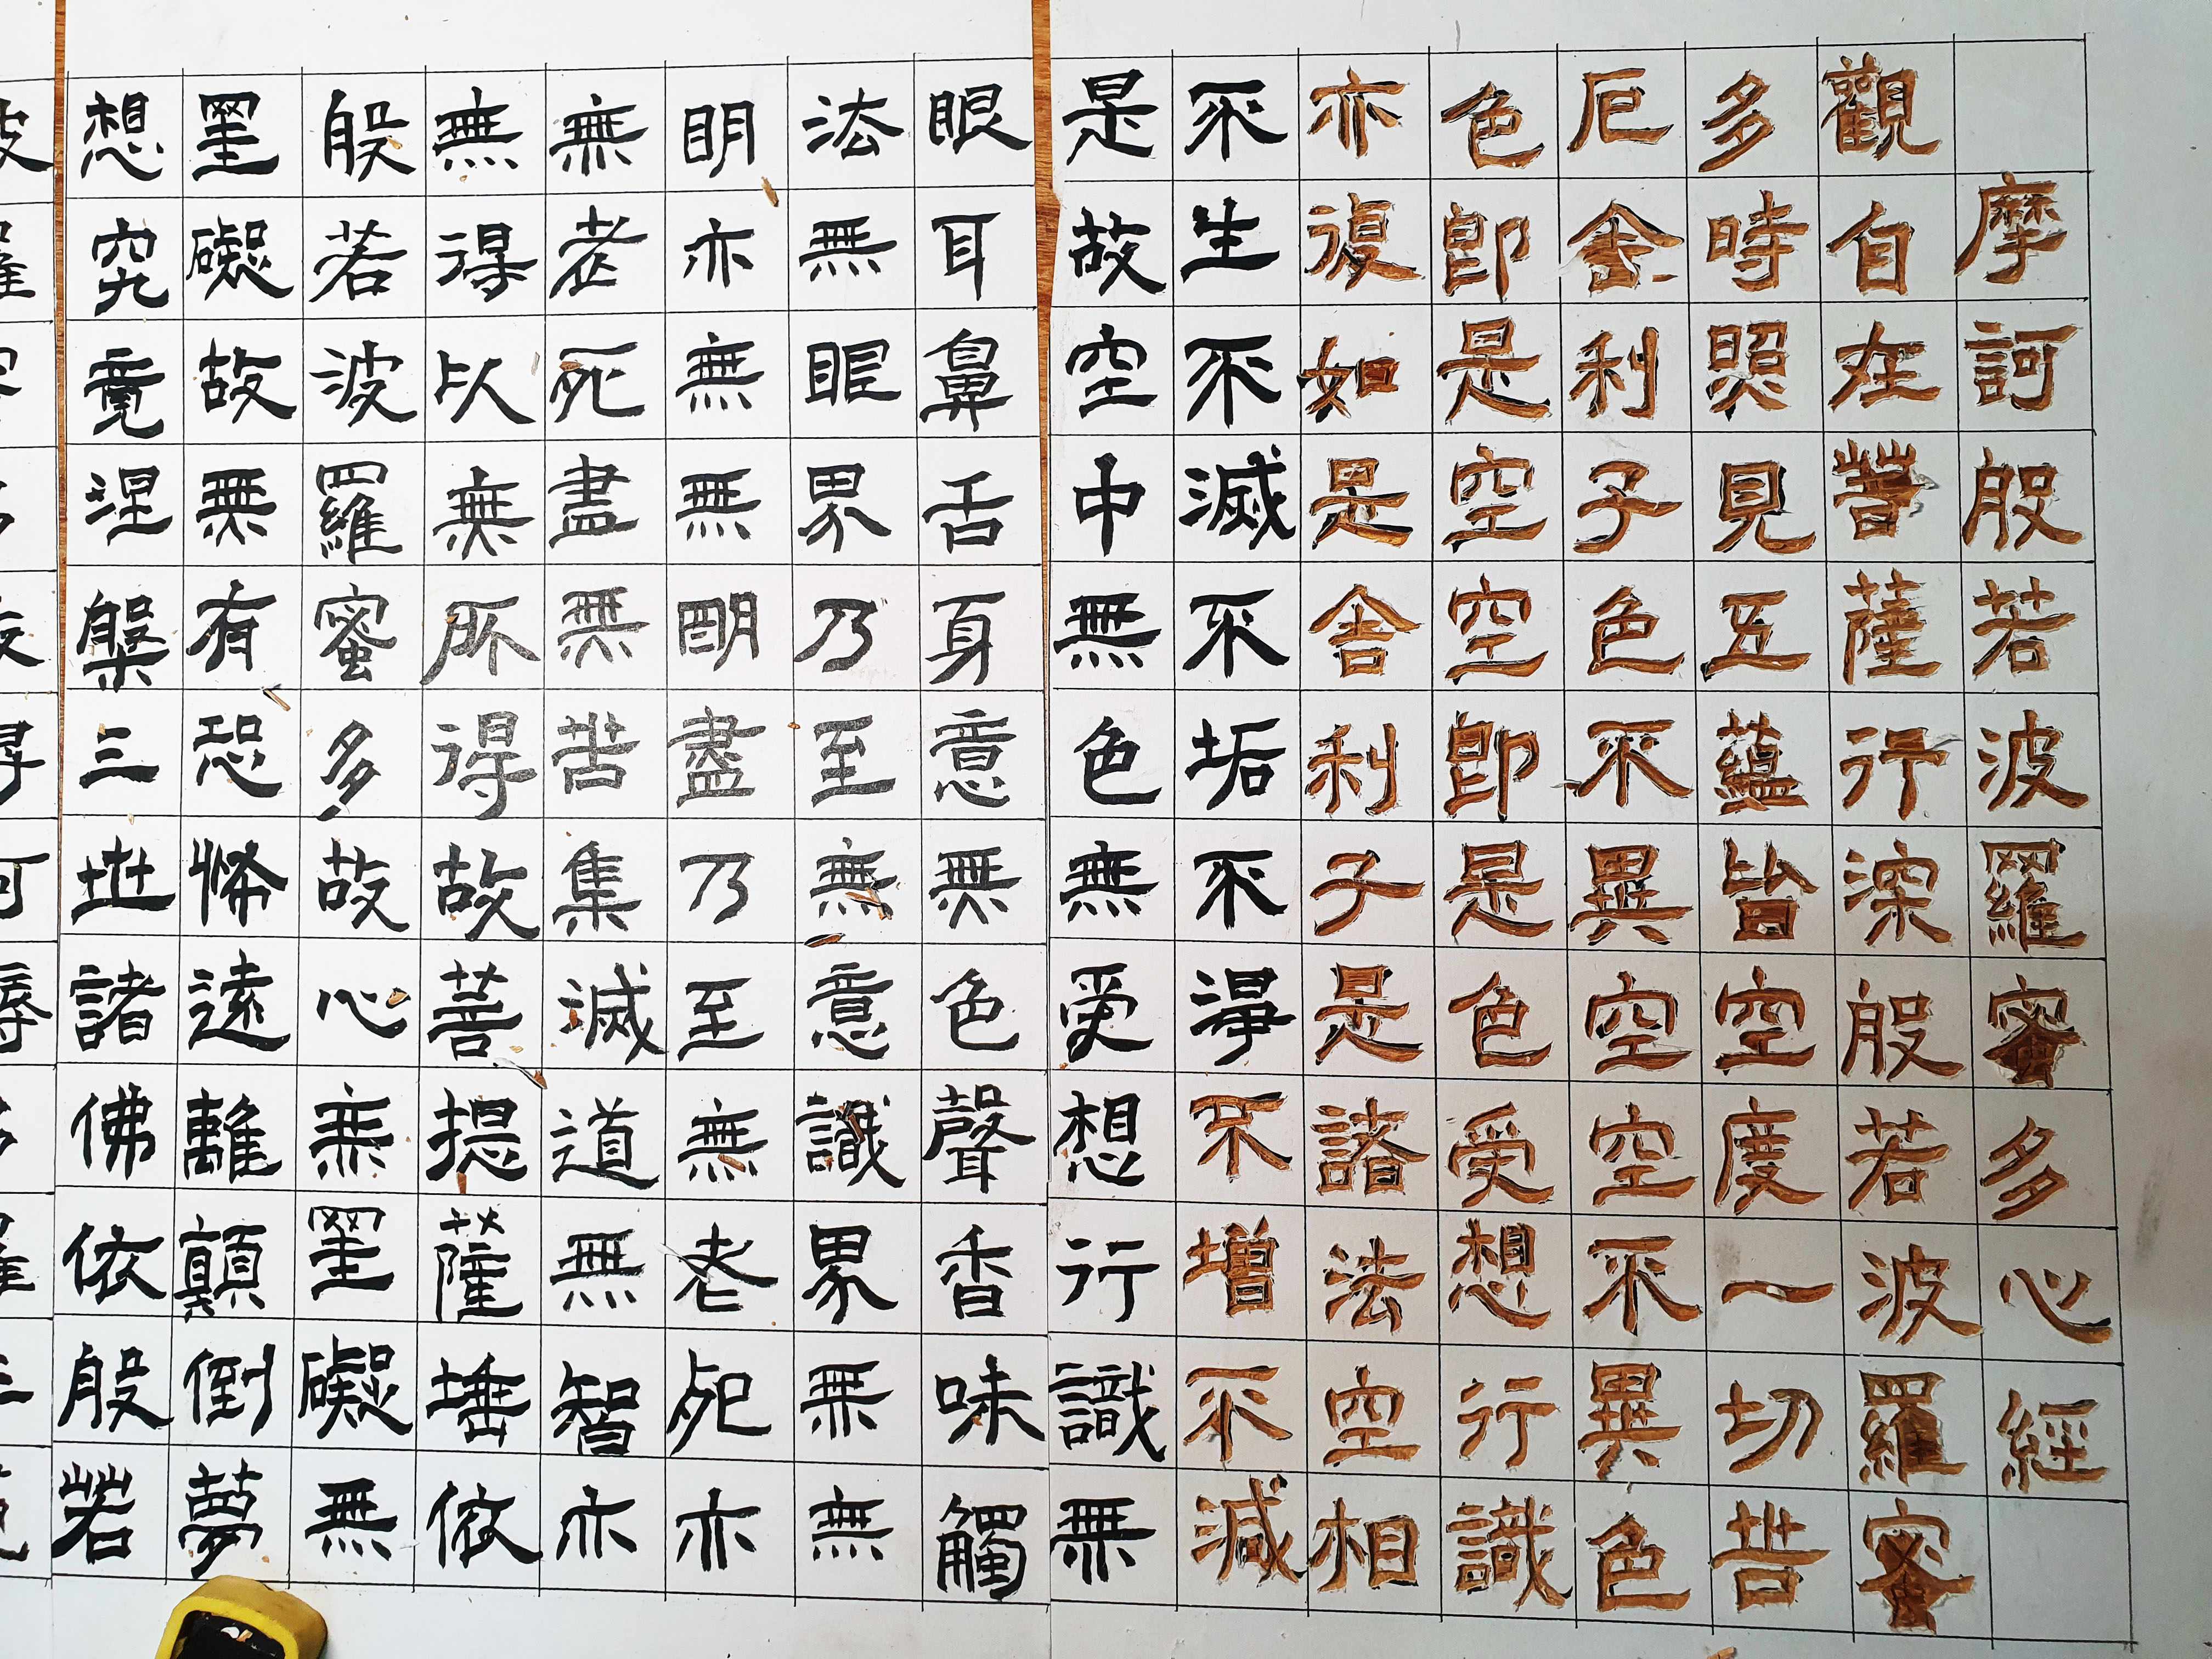 摩訶般若波羅蜜多心經
觀自在菩薩行深般若波羅蜜
多時照見五蘊皆空度一切苦
厄舍利子色不異空空不異色
色即是空空即是色受想行識
亦復如是舍利子是諸法空相
不生不滅不垢不淨不增不減
是故空中無色無受想行識無
眼耳鼻舌身意無色聲香味觸
法無眼界乃至無意識界無無
明亦無無明盡乃至無老死亦
無老死盡無苦集滅道無智亦
無得以無所得故菩提薩埵依
般若波羅蜜多故心無罣礙無
罣礙故無有恐怖遠離顛倒夢
想究竟涅槃三世諸佛依般若